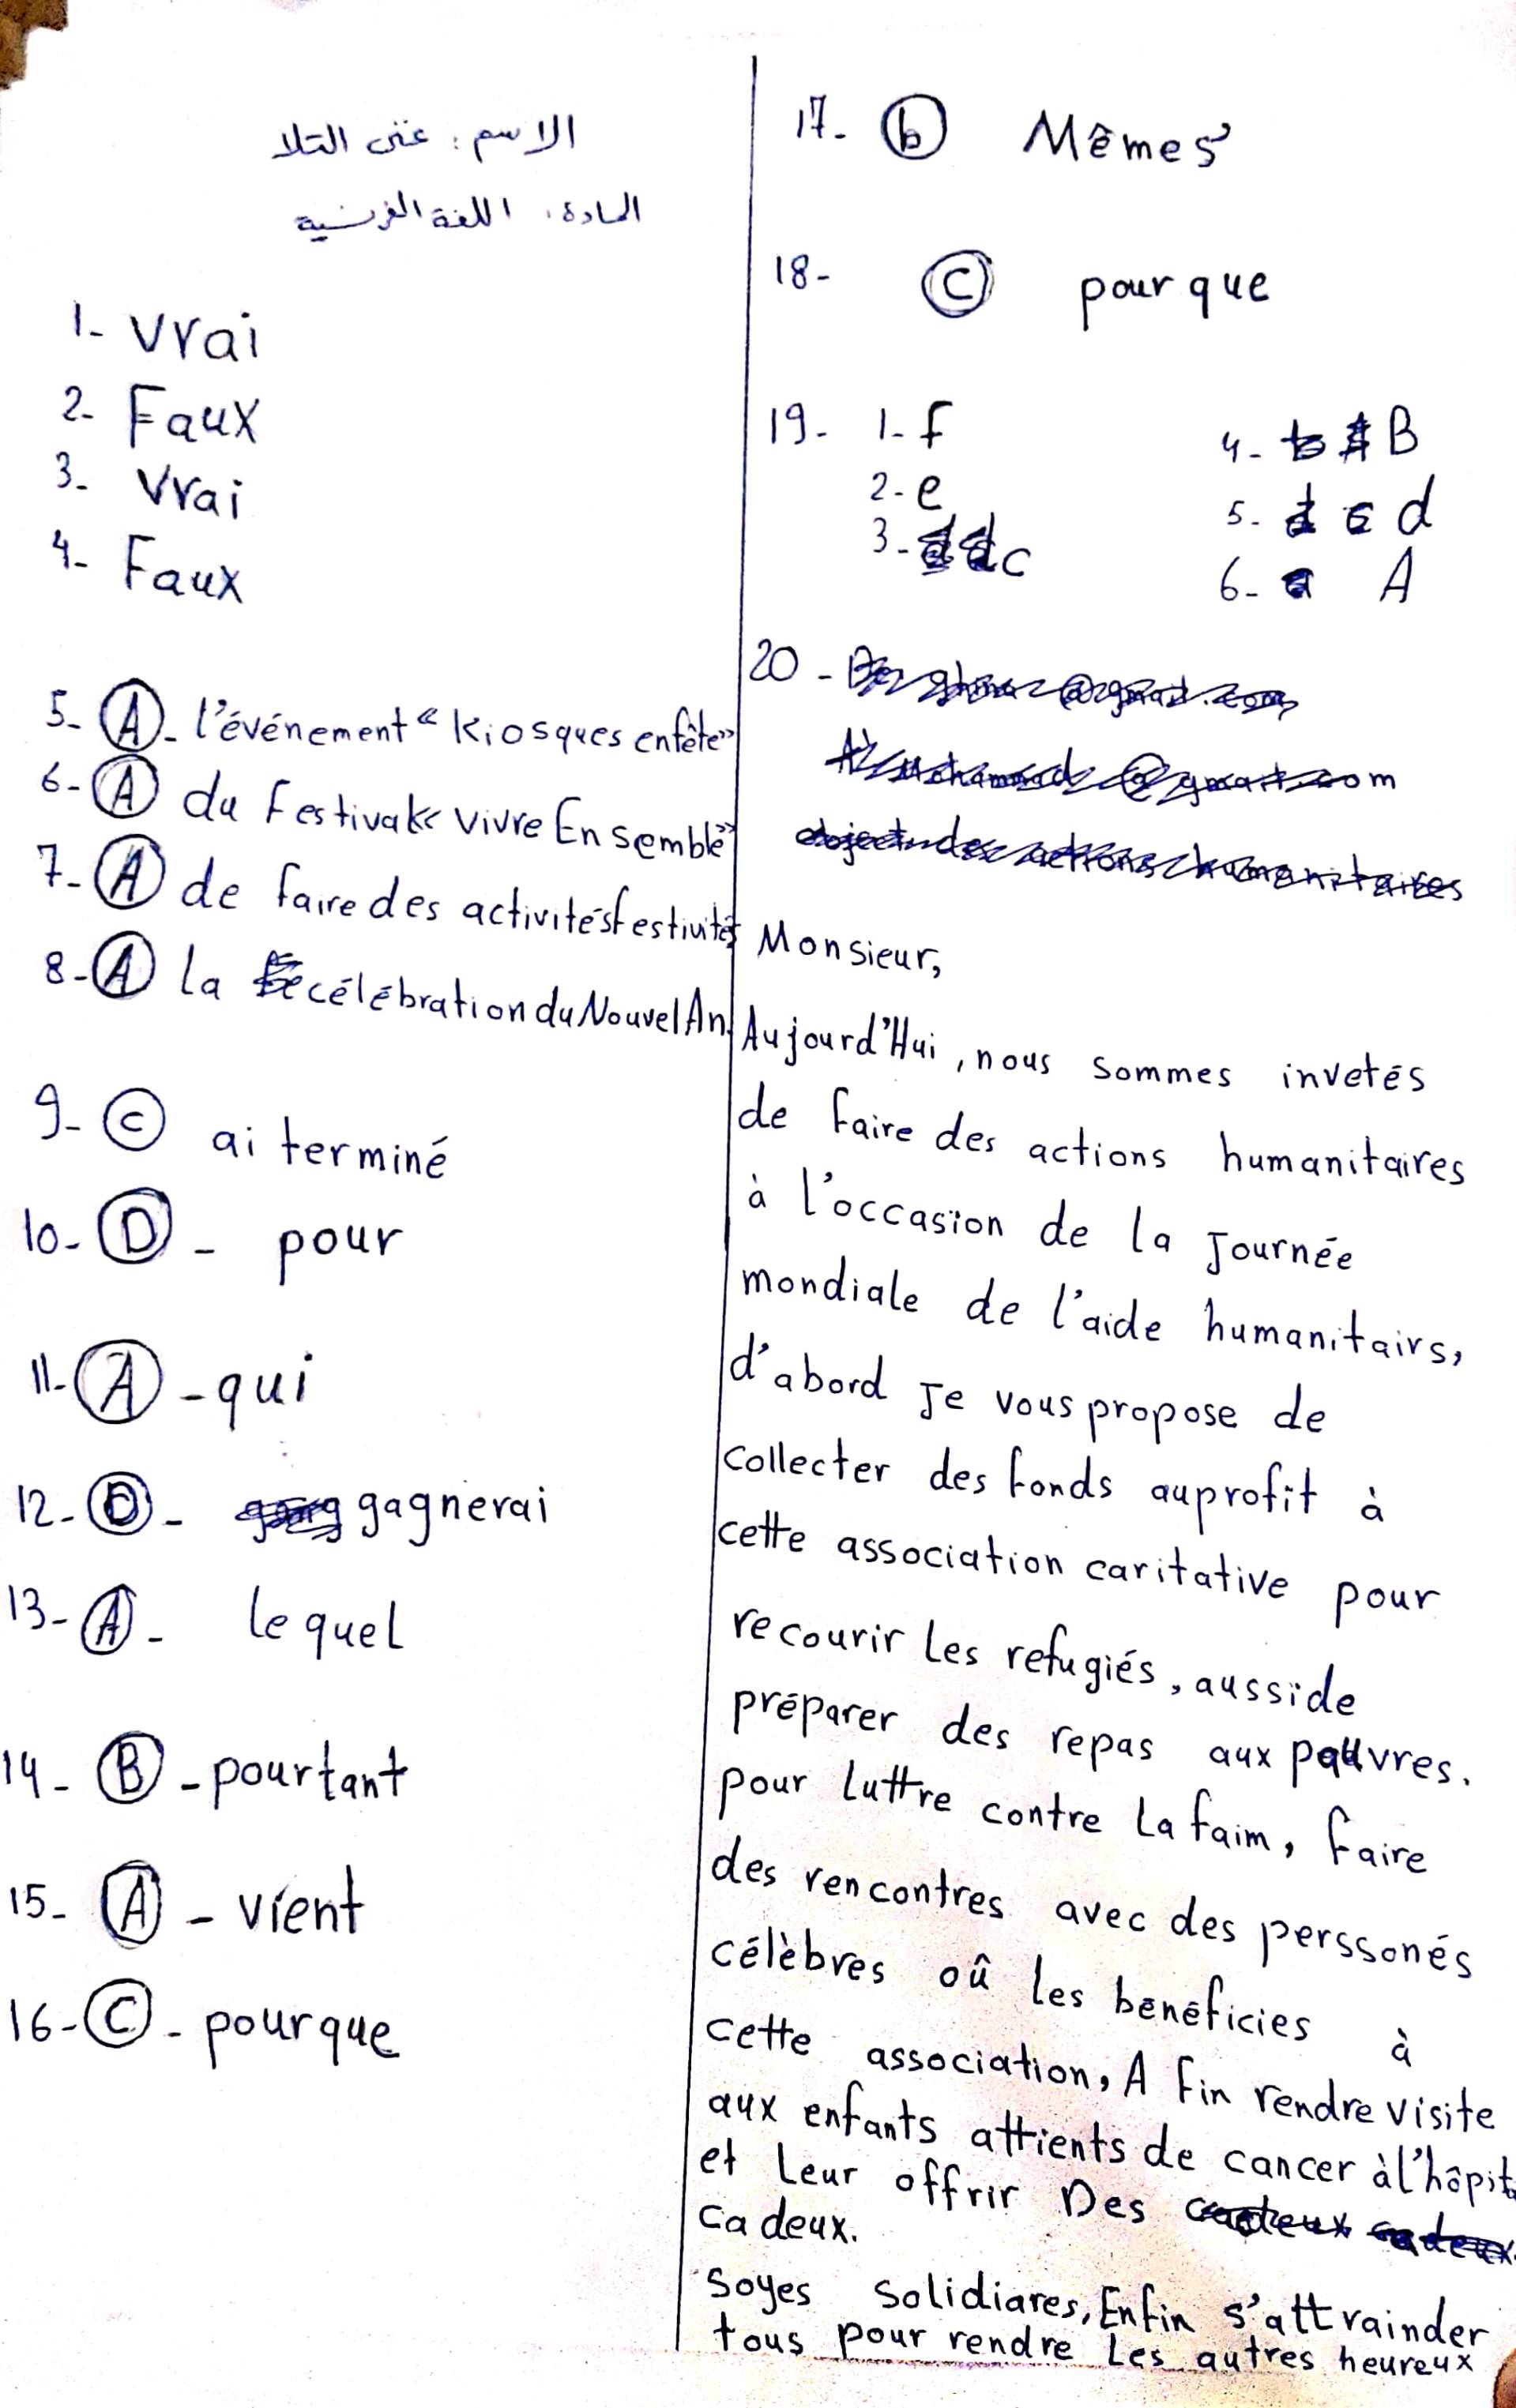 الاسم : غنى التلا
المادة : اللغة الفرنسية
1- Vrai
2- Faux
3- Vrai
4- Faux
5- A - l'événement « Kiosques en fête »
6- A du Festival « Vivre Ensemble »
7- A de faire des activités festivités
8- A la célébration du Nouvel An.
9- C ai terminé
10- D - pour
11- A - qui
12- D - gagnerai
13- A - lequel
14- B - pourtant
15- A - vient
16- C - pour que
17- b Mêmes
18- C pour que
19- 1- f
2- e
3- c
4- B
5- d
6- A
20 -
Monsieur,
Aujourd'Hui, nous sommes invetés
de faire des actions humanitaires
à l'occasion de la Journée
mondiale de l'aide humanitairs,
d'abord Je vous propose de
collecter des fonds au profit à
cette association caritative pour
recourir les refugiés, aussi de
préparer des repas aux pauvres.
pour luttre contre la faim, faire
des rencontres avec des perssonés
célèbres oû les bénéficies à
cette association, A fin rendre visite
aux enfants attients de cancer à l'hôpit
et leur offrir Des
cadeux.
Soyes solidiares, Enfin s'attrainder
tous pour rendre les autres heureux